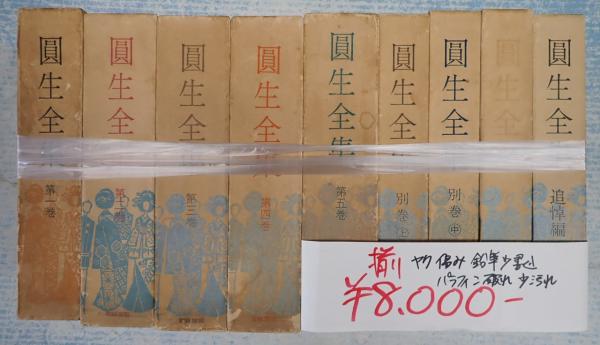 圓生全集
第一巻
圓生全集
第二巻
圓生全集
第三巻
圓生全集
第四巻
圓生全集
第五巻
圓生全
別巻(上)
圓生全
別巻(中)
圓生全
圓生全
追悼編
揃 ヤケ 傷み 鉛筆少書込
パラフィン破れ 少汚れ
¥8.000-